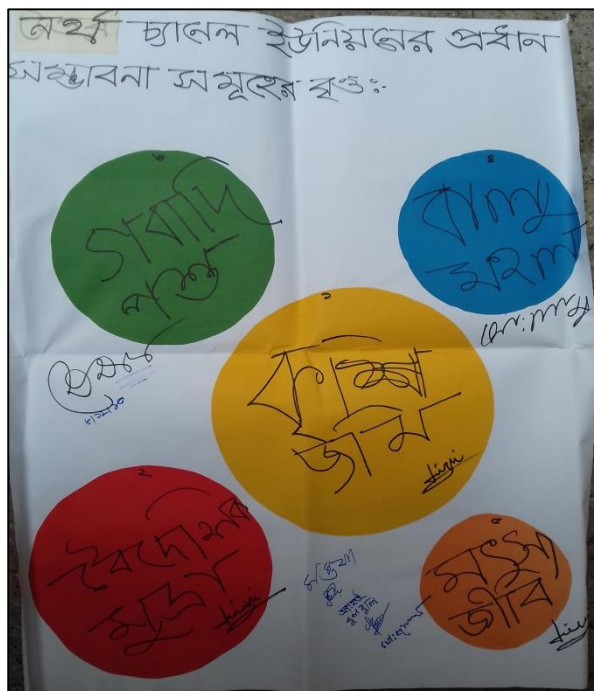 নর্থ চ্যানেল ইউনিয়নের প্রধান
সম্ভাবনা সমূহের বৃত্ত:-
৩
গবাদি
পশু
৪
বালু
মহল
১
কৃষি
জমি
২
বৈদেশিক
মুদ্রা
৫
মৎস্য
জীবি